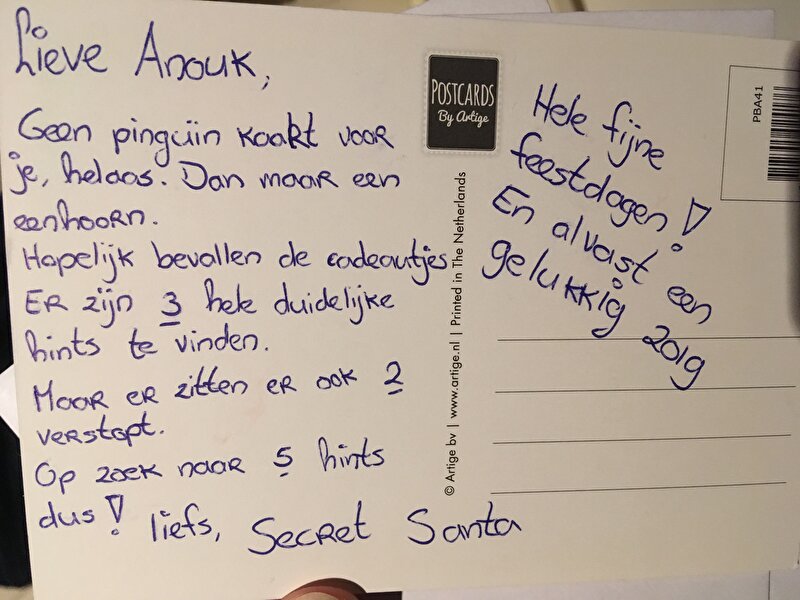 Lieve Anouk,
Geen pinguïn kaakt voor
je, helaas. Dan maar een
eenhoorn.
Hapelijk bevallen de cadeautjes
Er zijn 3 hele duidelijke
hints te vinden.
Maar er zitten er ook 2
verstopt.
Op zoek naar 5 hints
dus! liefs, Secret Santa
POSTCARDS
By Artige
© Artige bv | www.artige.nl | Printed in The Netherlands
Hele fijne
feestdagen!
En alvast een
gelukkig 2019
PBA41